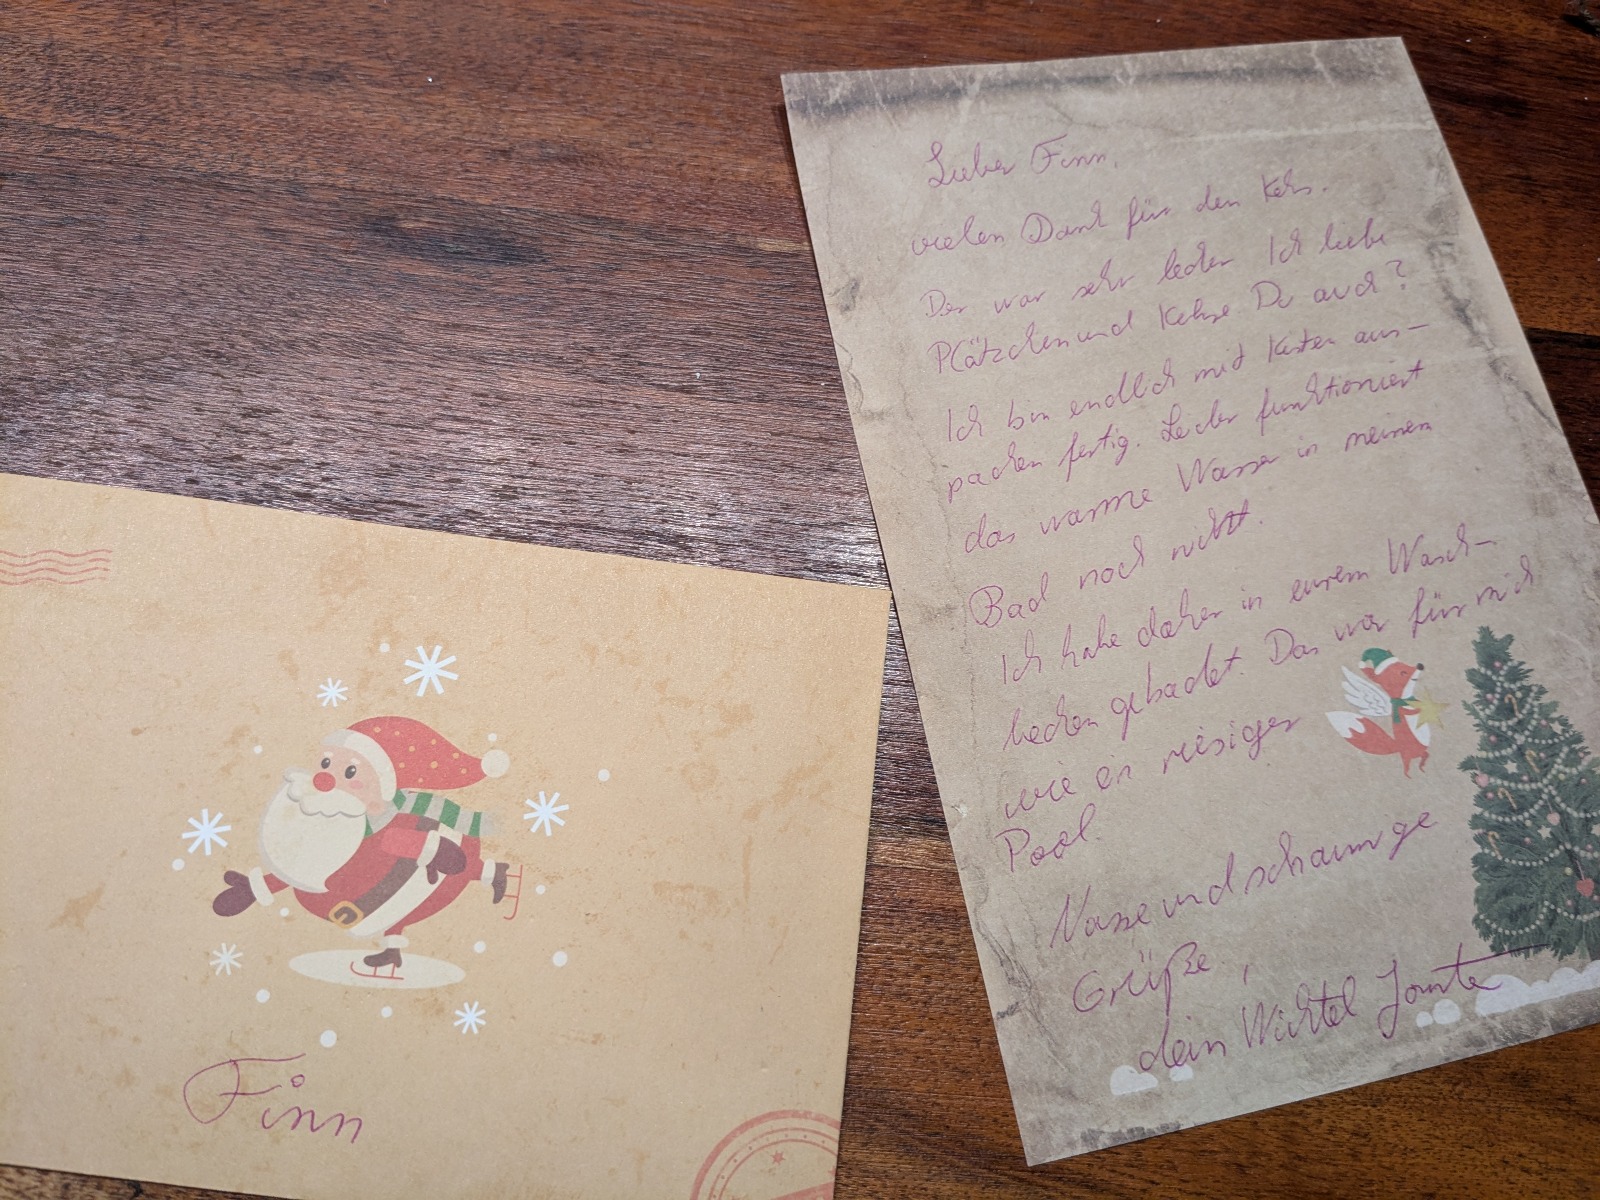 Finn
Lieber Finn,
vielen Dank für den Keks.
Der war sehr lecker Ich liebe
Plätzchen und Kekse Du auch?
Ich bin endlich mit Kisten aus-
packen fertig. Leider funktioniert
das warme Wasser in meinem
Bad noch nicht.
Ich habe daher in eurem Wasch-
becken gebadet. Das war für mich
wie ein riesiger
Pool.
Nasse und schaumige
Grüße,
dein Wichtel